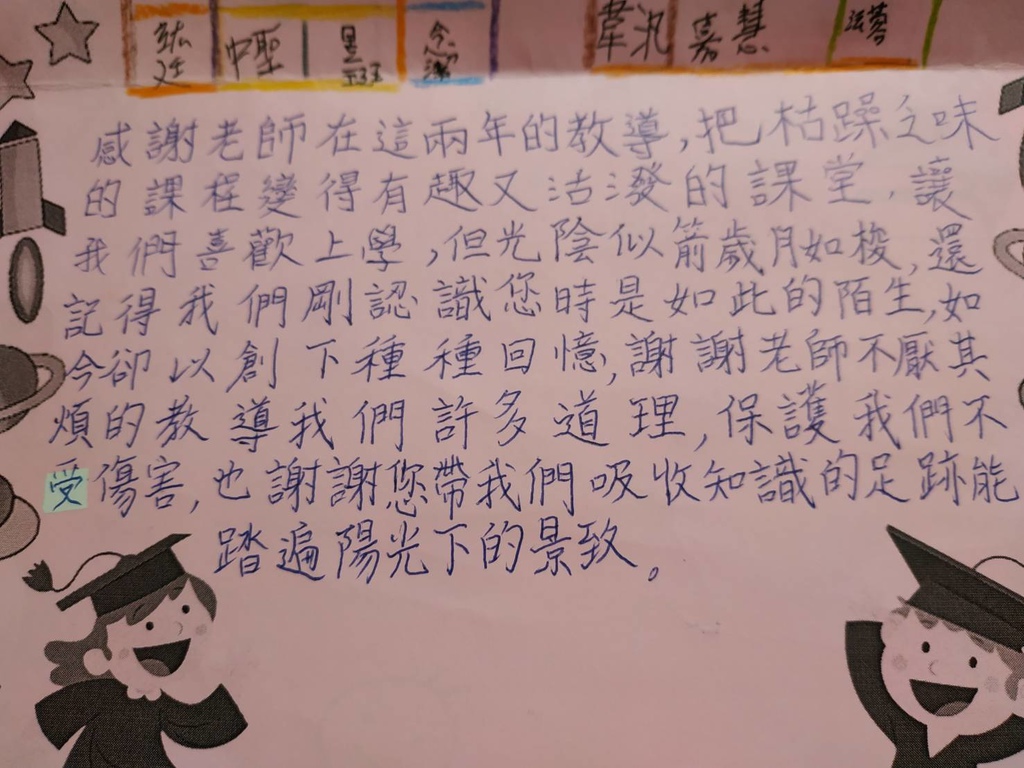 念潔
嘉慧
感謝老師在這兩年的教導,把枯躁乏味
的課程變得有趣又活潑的課堂,讓
我們喜歡上學,但光陰似箭歲月如梭,還
記得我們剛認識您時是如此的陌生,如
今卻以創下種種回憶,謝謝老師不厭其
煩的教導我們許多道理,保護我們不
受傷害,也謝謝您帶我們吸收知識的足跡能
踏遍陽光下的景致。